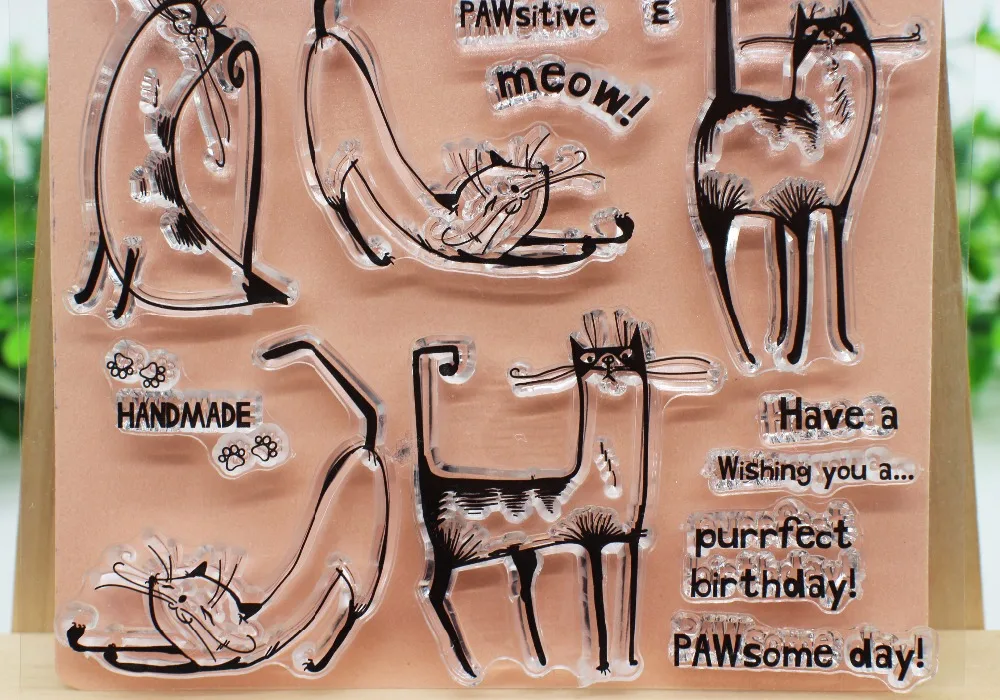 PAWsitive
meow!
HANDMADE
Have a
Wishing you a...
purrfect
birthday!
PAWsome day!